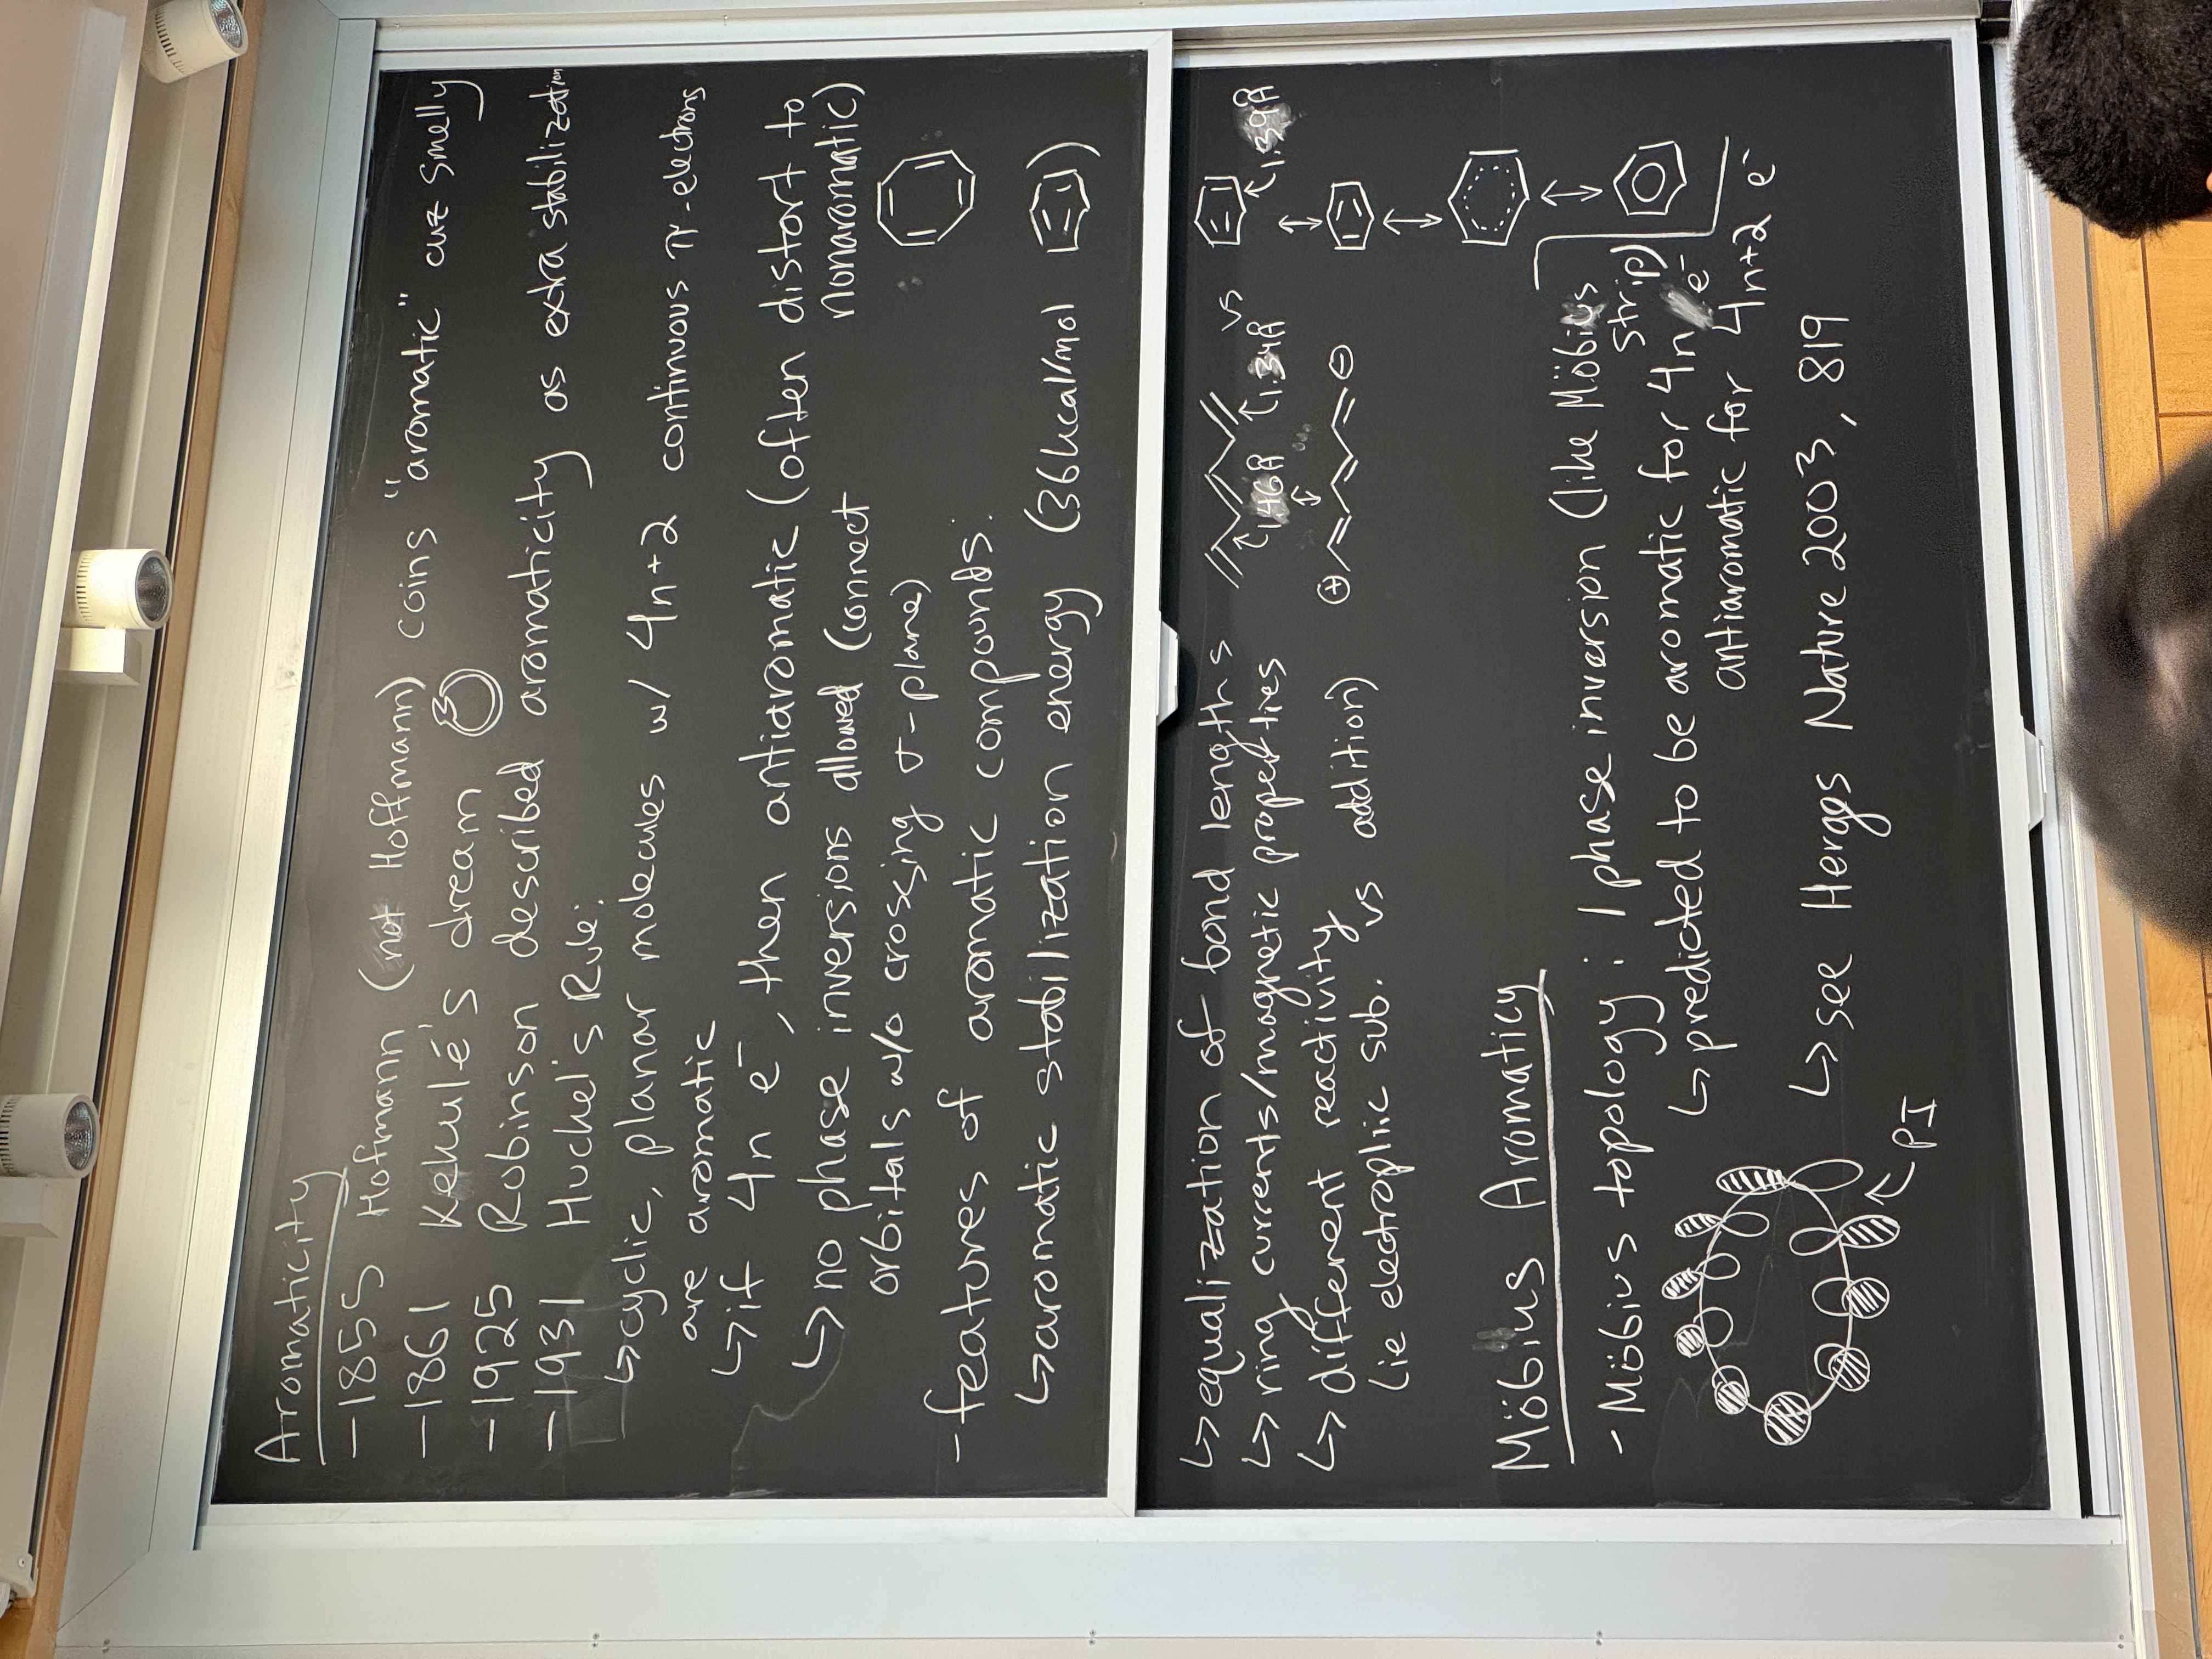 Aromaticity
-1855 Hofmann (not Hoffmann) coins "aromatic" cuz smelly
-1861 Kekulé's dream
-1925 Robinson described aromaticity as extra stabilization
-1931 Huckel's Rule:
↳cyclic, planar molecules w/ 4n+2 continuous π-electrons
are aromatic
↳if 4n e⁻, then antiaromatic (often distort to
nonaromatic)
↳no phase inversions allowed (connect
orbitals w/o crossing σ-plane)
-features of aromatic compounds:
↳aromatic stabilization energy (36kcal/mol )
↳equalization of bond lengths vs
1.46Å 1.34Å 1.39Å
↳ring currents/magnetic properties
↳different reactivity
(ie electroplic sub. vs addition)
⊕ ⊖
Möbius Aromaticy
-Möbius topology: 1 phase inversion (like Möbius
strip)
↳predicted to be aromatic for 4n e⁻
antiaromatic for 4n+2 e⁻
↳see Herges Nature 2003, 819
PI